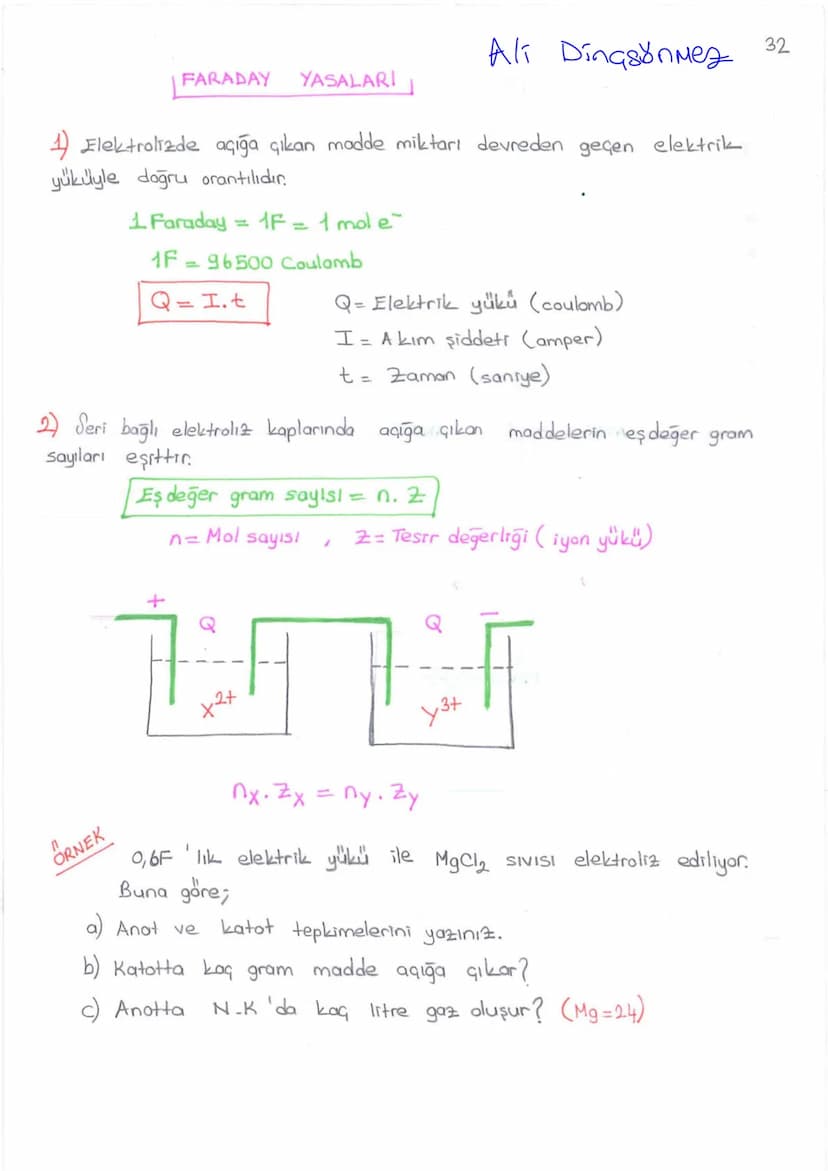 Ali Dinçsönmez 32
FARADAY YASALARI
1) Elektrolizde açığa çıkan madde miktarı devreden geçen elektrik
yüküyle doğru orantılıdır.
1 Faraday = 1F = 1 mol e⁻
1F = 96500 Coulomb
Q = I.t
Q = Elektrik yükü (coulomb)
I = Akım şiddeti (amper)
t = Zaman (saniye)
2) Seri bağlı elektroliz kaplarında açığa çıkan maddelerin eşdeğer gram
sayıları eşittir.
Eşdeğer gram sayısı = n. Z
n = Mol sayısı , Z = Tesir değerliği (iyon yükü)
+ Q Q −
X²⁺ Y³⁺
nₓ.Zₓ = nᵧ.Zᵧ
ÖRNEK
0,6F 'lık elektrik yükü ile MgCl₂ sıvısı elektroliz ediliyor.
Buna göre;
a) Anot ve katot tepkimelerini yazınız.
b) Katotta kaç gram madde açığa çıkar?
c) Anotta N.K 'da kaç litre gaz oluşur? (Mg=24)